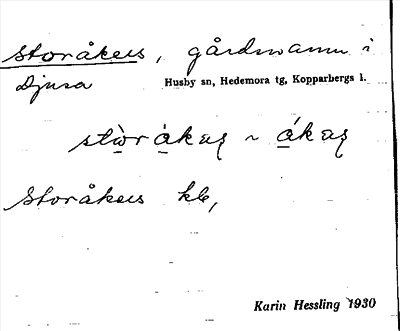 Storåkers, gårdsnamn i
Djusa Husby sn, Hedemora tg, Kopparbergs l.
Storåkers kb,
Karin Hessling 1930